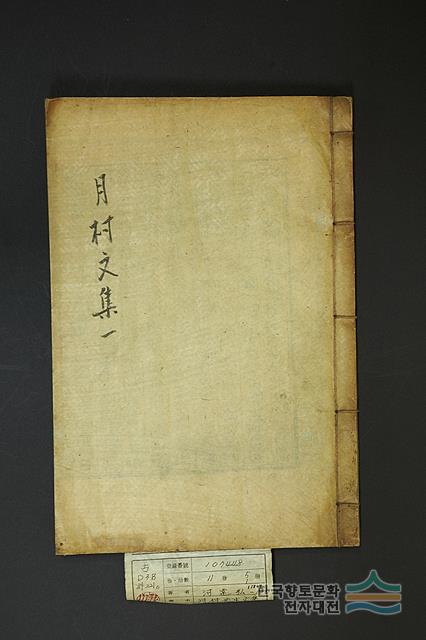 月村文集 一
古
D3B
登錄番號 107448
11 卷 5 冊
한국향토문화
전자대전